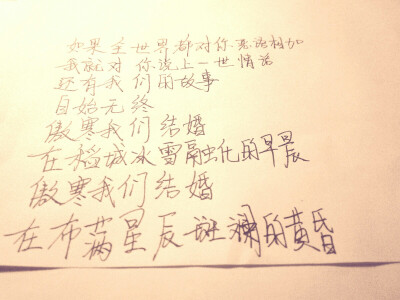 如果全世界都对你恶语相加
我就对你说上一世情话
还有我们的故事
自始无终
傲寒我们结婚
在稻城冰雪融化的早晨
傲寒我们结婚
在布满星辰斑斓的黄昏